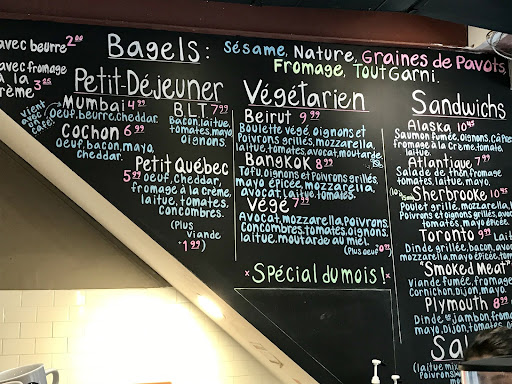 avec beurre 2.00
avec fromage
à la
crème 3.25
Bagels: Sésame, Nature, Graines de Pavots,
Fromage, Tout Garni.
Petit-Déjeuner
Mumbai 4.99
Oeuf, beurre, cheddar.
Vient
avec un
café!
Cochon 6.99
Oeuf, bacon, mayo,
cheddar.
B.L.T 7.99
Bacon, laitue,
tomates, mayo,
oignons.
Petit Québec
5.99 oeuf, cheddar,
fromage à la crème,
laitue, tomates,
concombres.
(Plus
Viande
+1.99)
Végétarien
Beirut 9.99
Boulette végé, oignons et
Poivrons grillés, mozzarella,
laitue, tomates, avocat, moutarde
Bangkok 8.99
Tofu, oignons et Poivrons grillés,
mayo épicée, mozzarella,
avocat, laitue, tomates.
Végé 7.99
Avocat, mozzarella, Poivrons,
concombres, tomates, oignons,
laitue, moutarde au miel.
(Plus oeuf
* SPÉCIAL du mois! *
Sandwichs
Alaska 10.45
Saumon fumée, oignons, câpres
fromage à la crème, tomate,
laitue.
Atlantique 7.99
Salade de thon, fromage
tomates, laitue, mayo.
Sherbrooke 10.95
Poulet grillé, mozzarella,
Poivrons et oignons grillés, avocat,
tomates, mayo épicée.
Toronto 9.99 Lait
Dinde grillé, bacon, avoc
mozzarella, mayo épicée, tom
"Smoked Meat"
Viande fumée, fromag
Cornichon, Dijon, mayo.
Plymouth 8.99
Dinde jambon, froma
mayo, Dijon, tomates,
Sal
(laitue mix
Poivrons